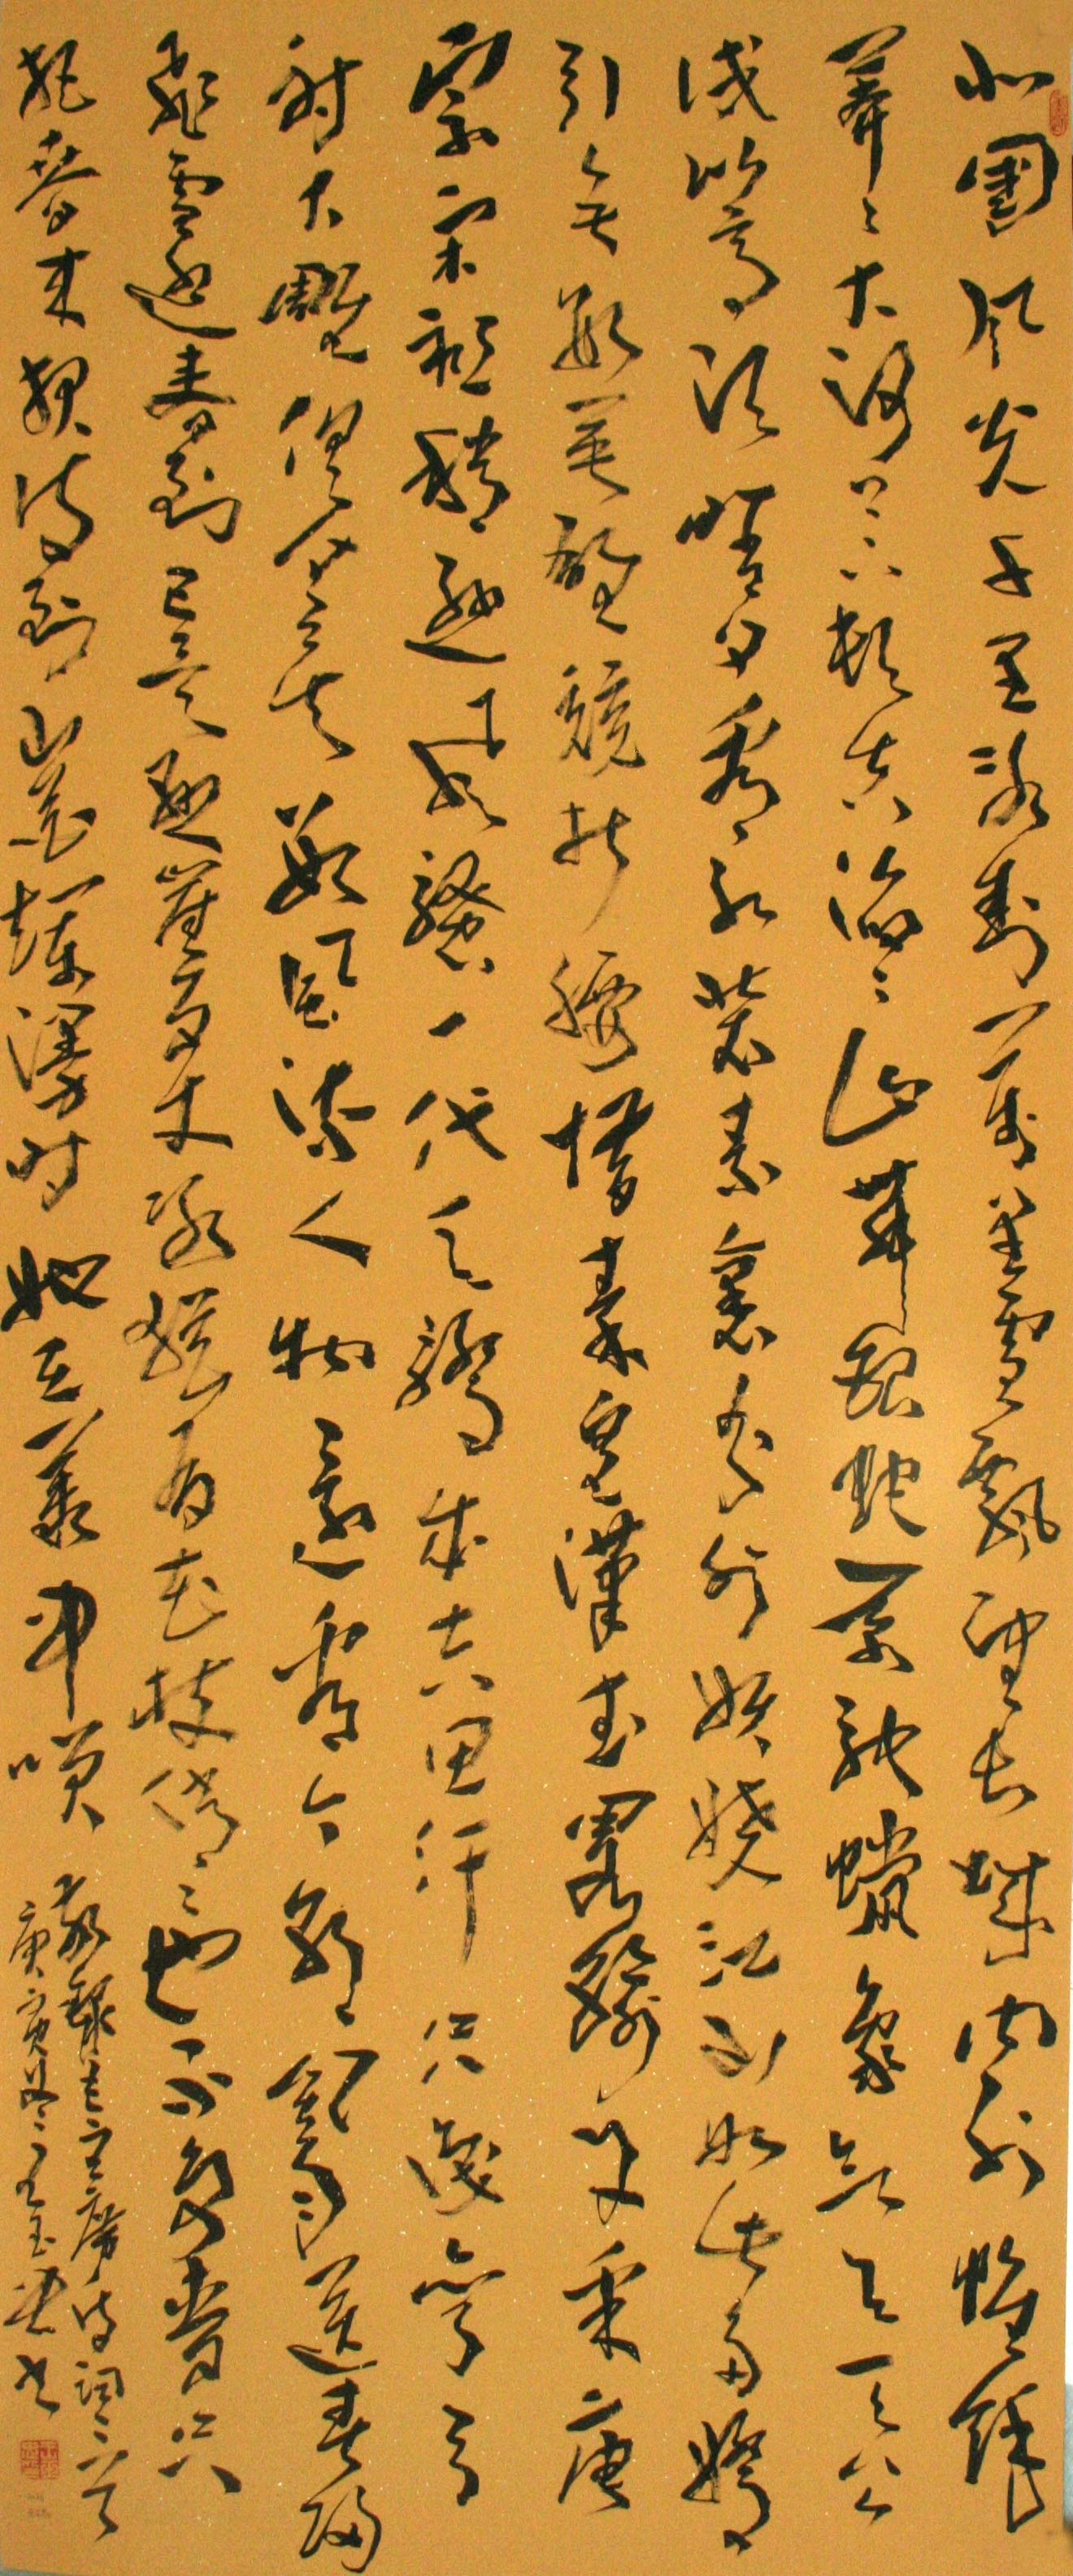 北國风光千里冰封万里雪飘望长城内外惟餘
莽々大河上下頓失滔々山舞銀蛇原馳蠟象欲与天公
試比高須晴日看紅裝素裹分外妖嬈江山如此多嬌
引無數英雄競折腰惜秦皇漢武略輸文采唐
宗宋祖稍遜風騷一代天驕成吉思汗只識彎弓
射大雕俱往矣數風流人物還看今朝風雨送春歸
飛雪迎春到已是懸崖百丈冰猶有花枝俏々也不爭春只
把春來報待到山花爛漫時她在叢中笑
敬錄毛主席詩詞二首
庚寅冬書